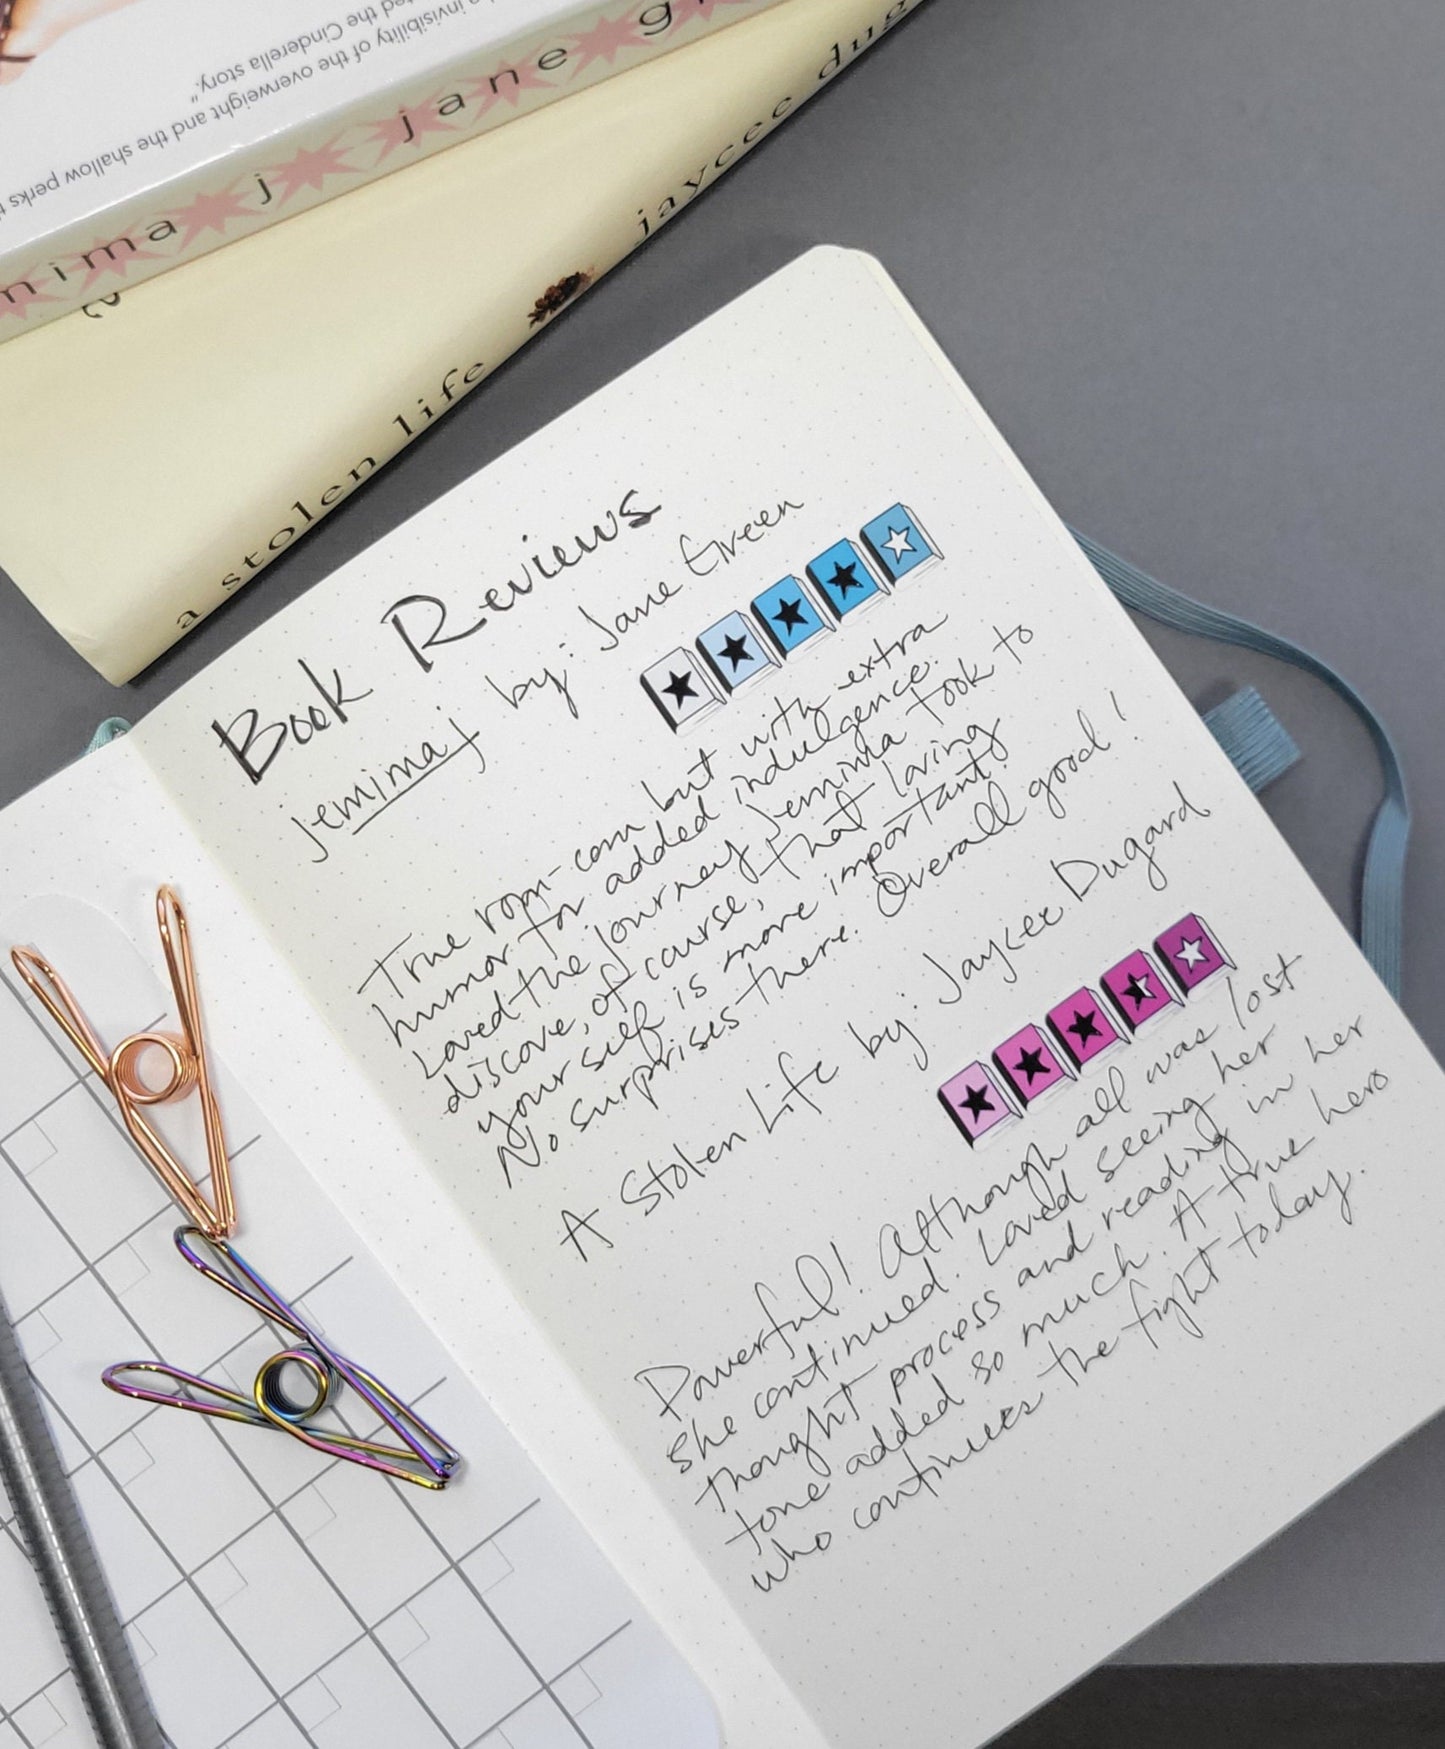 invisibility of the overweight and the shallow perks
the Cinderella story."
nima j jane g
a stolen life jaycee dug
Book Reviews
jemima j by: Jane Green
True rom-com but with extra
humor for added indulgence.
Loved the journey Jemima took to
discove, of course, that loving
yourself is more important.
No surprises there. Overall good!
A Stolen Life by: Jaycee Dugard
Powerful! Although all was lost
she continued. Loved seeing her
thought process and reading in her
tone added so much. A true hero
who continues the fight today.